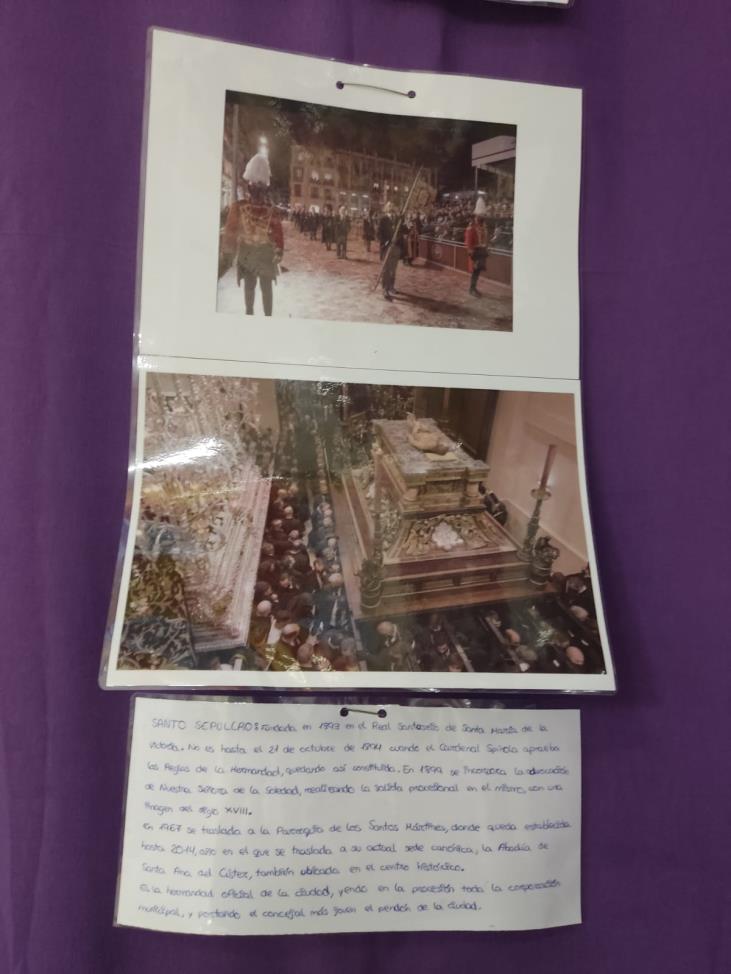 SANTO SEPULCRO: Fundada en 1893 en el Real Santuario de Santa María de la
Victoria. No es hasta el 21 de octubre de 1894 cuando el Cardenal Spínola aprueba
las Reglas de la Hermandad, quedando así constituida. En 1899 se incorpora la advocación
de Nuestra Señora de la Soledad, realizando la salida procesional en el mismo, con una
imagen del siglo XVIII.
En 1967 se traslada a la Parroquia de los Santos Mártires, donde queda establecida
hasta 2014, año en el que se traslada a su actual sede canónica, la Abadía de
Santa Ana del Císter, también ubicada en el centro histórico.
Es la hermandad oficial de la ciudad, yendo en la procesión toda la corporación
municipal, y portando el concejal más joven el pendón de la ciudad.